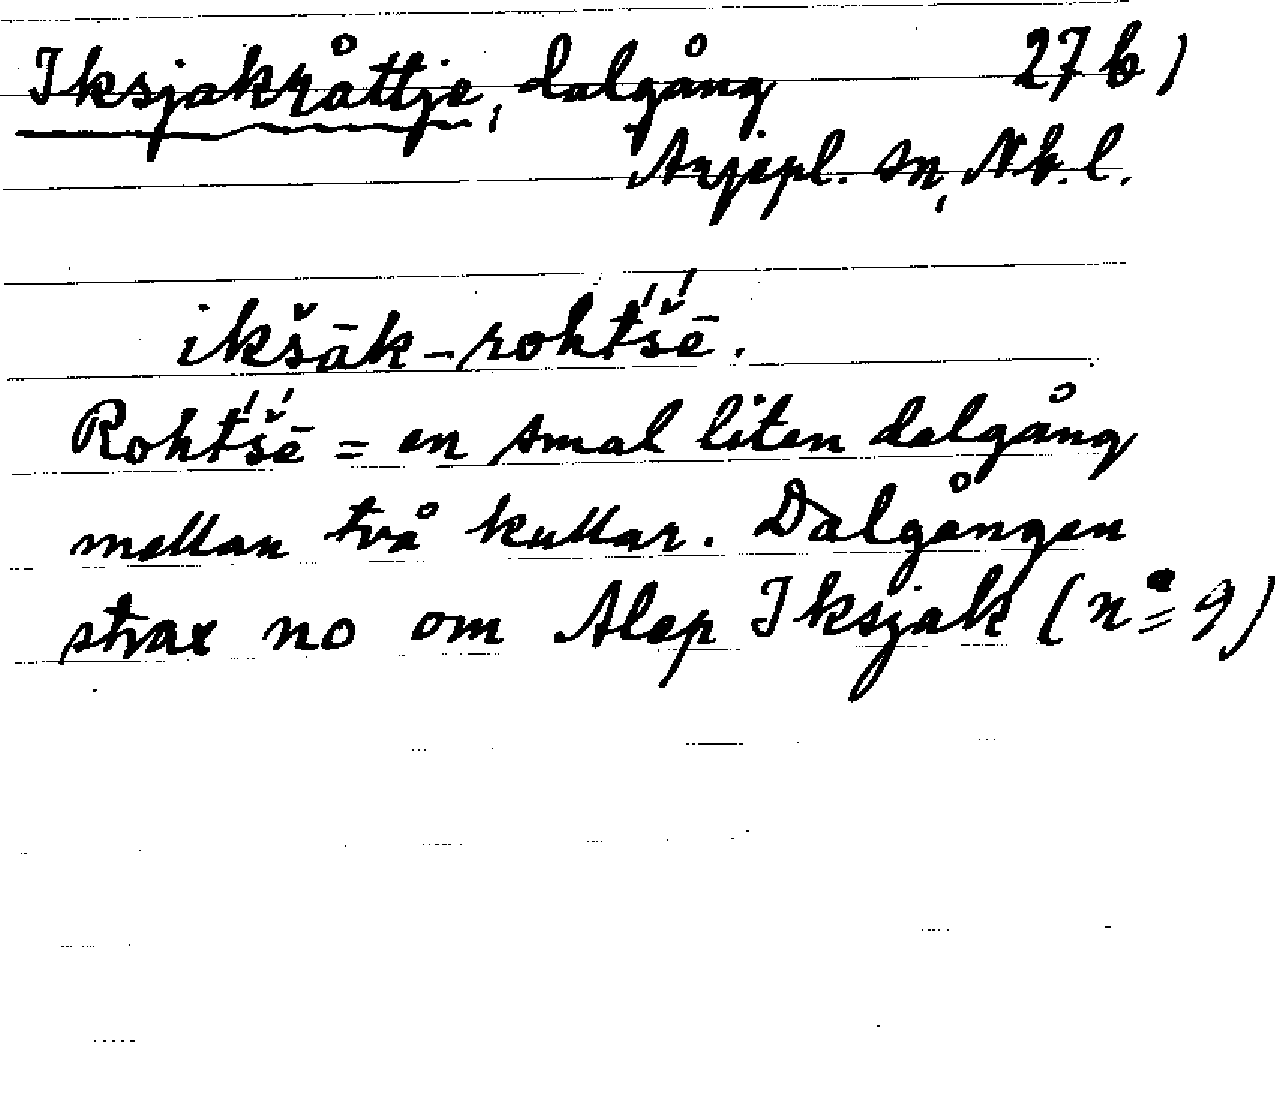 Iksjakråttje, dalgång 27b)
Arjepl. sn, Nb.l.
ikšāk-rohtˈšˈē.
Rohtˈšˈē = en smal liten dalgång
mellan två kullar. Dalgången
strax no om Alep Iksjak (nº 9)